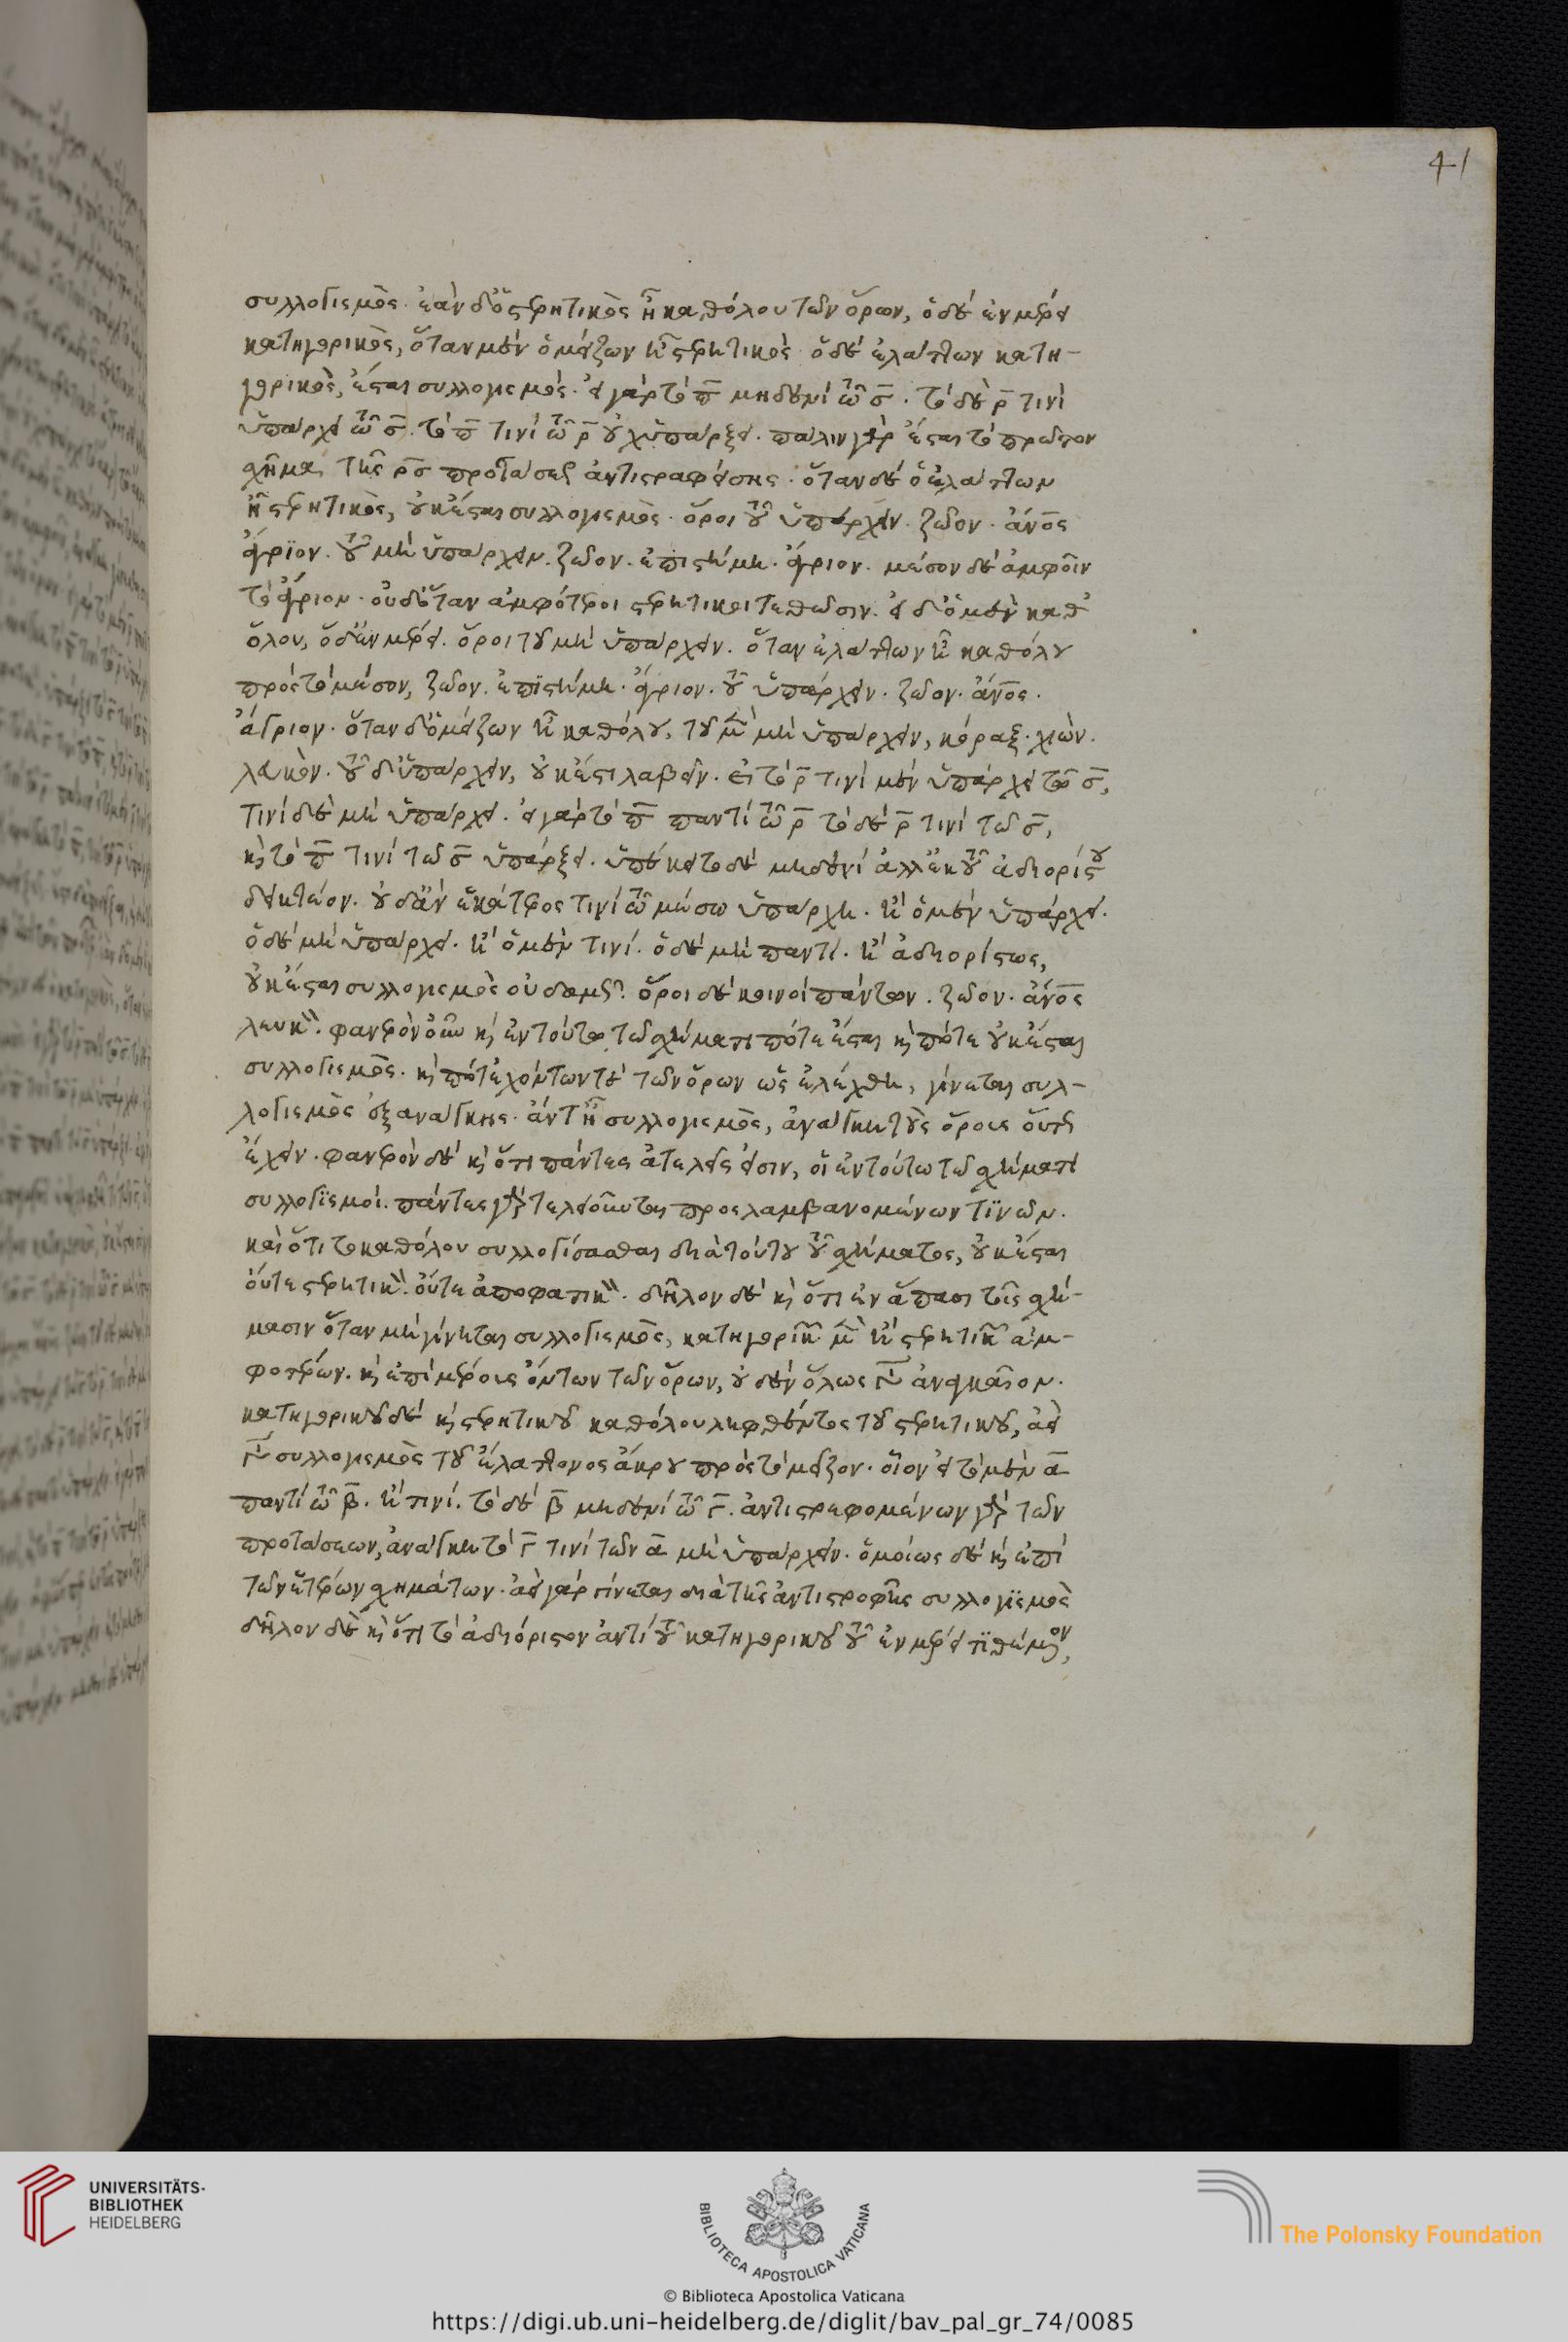 41
συλλογισμὸς. ἐὰν δ' ὁ στερητικὸς ἦ καθόλου τῶν ὅρων, ὁ δὲ ἐν μέρει
κατηγορικὸς, ὅταν μὲν ὁ μείζων ἦ στερητικὸς ὁ δὲ ἐλάττων κατη-
γορικὸς, ἔσται συλλογισμός. εἰ γὰρ τὸ π̅ μηδενὶ τῶ σ̅. τὸ δὲ ρ̅ τινὶ
ὑπάρχει τῶ σ̅. τὸ π̅ τινὶ τῶ ρ̅ οὐχ ὑπάρξει. πάλιν γὰρ ἔσται τὸ πρῶτον
σχῆμα, τῆς ρ̅σ̅ προτάσεως ἀντιστραφείσης. ὅταν δὲ ὁ ἐλάττων
ἦ στερητικὸς, οὐκ ἔσται συλλογισμὸς. ὅροι τοῦ ὑπάρχειν. ζῶον. ἄνο̅ς
ἄγριον. τοῦ μὴ ὑπάρχειν. ζῶον. ἐπιστήμη. ἄγριον. μέσον δὲ ἀμφοῖν
τὸ ἄγριον. οὐδ' ὅταν ἀμφότεροι στερητικοὶ τεθῶσιν. εἰ δ' ὁ μὲν καθ'
ὅλον, ὁ δ' ἐν μέρει. ὅροι τοῦ μὴ ὑπάρχειν. ὅταν ἐλάττων ἦ καθόλου
πρὸς τὸ μέσον, ζῶον. ἐπιστήμη. ἄγριον. τοῦ ὑπάρχειν. ζῶον. ἄνο̅ς.
ἄγριον. ὅταν δ' ὁ μείζων ἦ καθόλου, τοῦ μ̅ὲν μὴ ὑπάρχειν, κόραξ. χιὼν.
λευκὸν. τοῦ δ' ὑπάρχειν, οὐκ ἔστι λαβεῖν. εἰ τὸ ρ̅ τινὶ μὲν ὑπάρχει τῶ σ̅,
τινὶ δὲ μὴ ὑπάρχει. εἰ γὰρ τὸ π̅ παντὶ τῶ ρ̅ τὸ δὲ ρ̅ τινὶ τῶ σ̅,
κὶ τὸ π̅ τινὶ τῶ σ̅ ὑπάρξει. ὑπέκειτο δὲ μηδενί ἀλλ' ἐκ τοῦ ἀδιορίστου
δεικτέον. οὐδ' ἂν ἑκάτερος τινὶ τῶ μέσω ὑπάρχη. ἢ ὁ μὲν ὑπάρχει.
ὁ δὲ μὴ ὑπάρχει. ἢ ὁ μὲν τινί. ὁ δὲ μὴ παντί. ἢ ἀδιορίστως,
οὐκ ἔσται συλλογισμὸς οὐδαμῶς. ὅροι δὲ κοινοὶ πάντων. ζῶον. ἄνο̅ς
λευκὸν. φανερὸν οὖν κὶ ἐν τούτω τῶ σχήματι πότε ἔσται κὶ πότε οὐκ ἔσται
συλλογισμὸς. κὶ πότ' ἐχόντων τε τῶν ὅρων ὡς ἐλέχθη, γίνεται συλ-
λογισμὸς ἐξ ἀνάγκης. ἄν τ' ἦ συλλογισμὸς, ἀνάγκη τοὺς ὅρους οὕτως
ἔχειν. φανερὸν δὲ κὶ ὅτι πάντες ἀτελεῖς εἰσιν, οἱ ἐν τούτω τῶ σχήματι
συλλογισμοί. πάντες γὰρ τελειοῦνται προσλαμβανομένων τινῶν.
καὶ ὅτι τὸ καθόλου συλλογίσασθαι διὰ τούτου τοῦ σχήματος, οὐκ ἔσται
οὔτε στερητικὸν. οὔτε ἀποφατικὸν. δῆλον δὲ κὶ ὅτι ἐν ἅπασι τοῖς σχή-
μασιν ὅταν μὴ γίνηται συλλογισμὸς, κατηγορικῶν μ̅ὲν ἢ στερητικῶν ἀμ-
φοτέρων. κὶ ἐπὶ μέρους ὄντων τῶν ὅρων, οὐδὲν ὅλως γίνεται ἀναγκαῖον.
κατηγορικοῦ δὲ κὶ στερητικοῦ καθόλου ληφθέντος τοῦ στερητικοῦ, ἀεὶ
γίνεται συλλογισμὸς τοῦ ἐλάττονος ἄκρου πρὸς τὸ μεῖζον. οἷον εἰ τὸ μὲν α̅
παντὶ τῶ β̅. ἢ τινί. τὸ δὲ β̅ μηδενὶ τῶ γ̅. ἀντιστρεφομένων γὰρ τῶν
προτάσεων, ἀνάγκη τὸ γ̅ τινὶ τῶν α̅ μὴ ὑπάρχειν. ὁμοίως δὲ κὶ ἐπὶ
τῶν ἑτέρων σχημάτων. ἀεὶ γὰρ γίνεται διὰ τῆς ἀντιστροφῆς συλλογισμὸς
δῆλον δὲ κὶ ὅτι τὸ ἀδιόριστον ἀντὶ τοῦ κατηγορικοῦ τοῦ ἐν μέρει τιθέμενον,
UNIVERSITÄTS-
BIBLIOTHEK
HEIDELBERG
BIBLIOTECA APOSTOLICA VATICANA
The Polonsky Foundation
© Biblioteca Apostolica Vaticana
https://digi.ub.uni-heidelberg.de/diglit/bav_pal_gr_74/0085